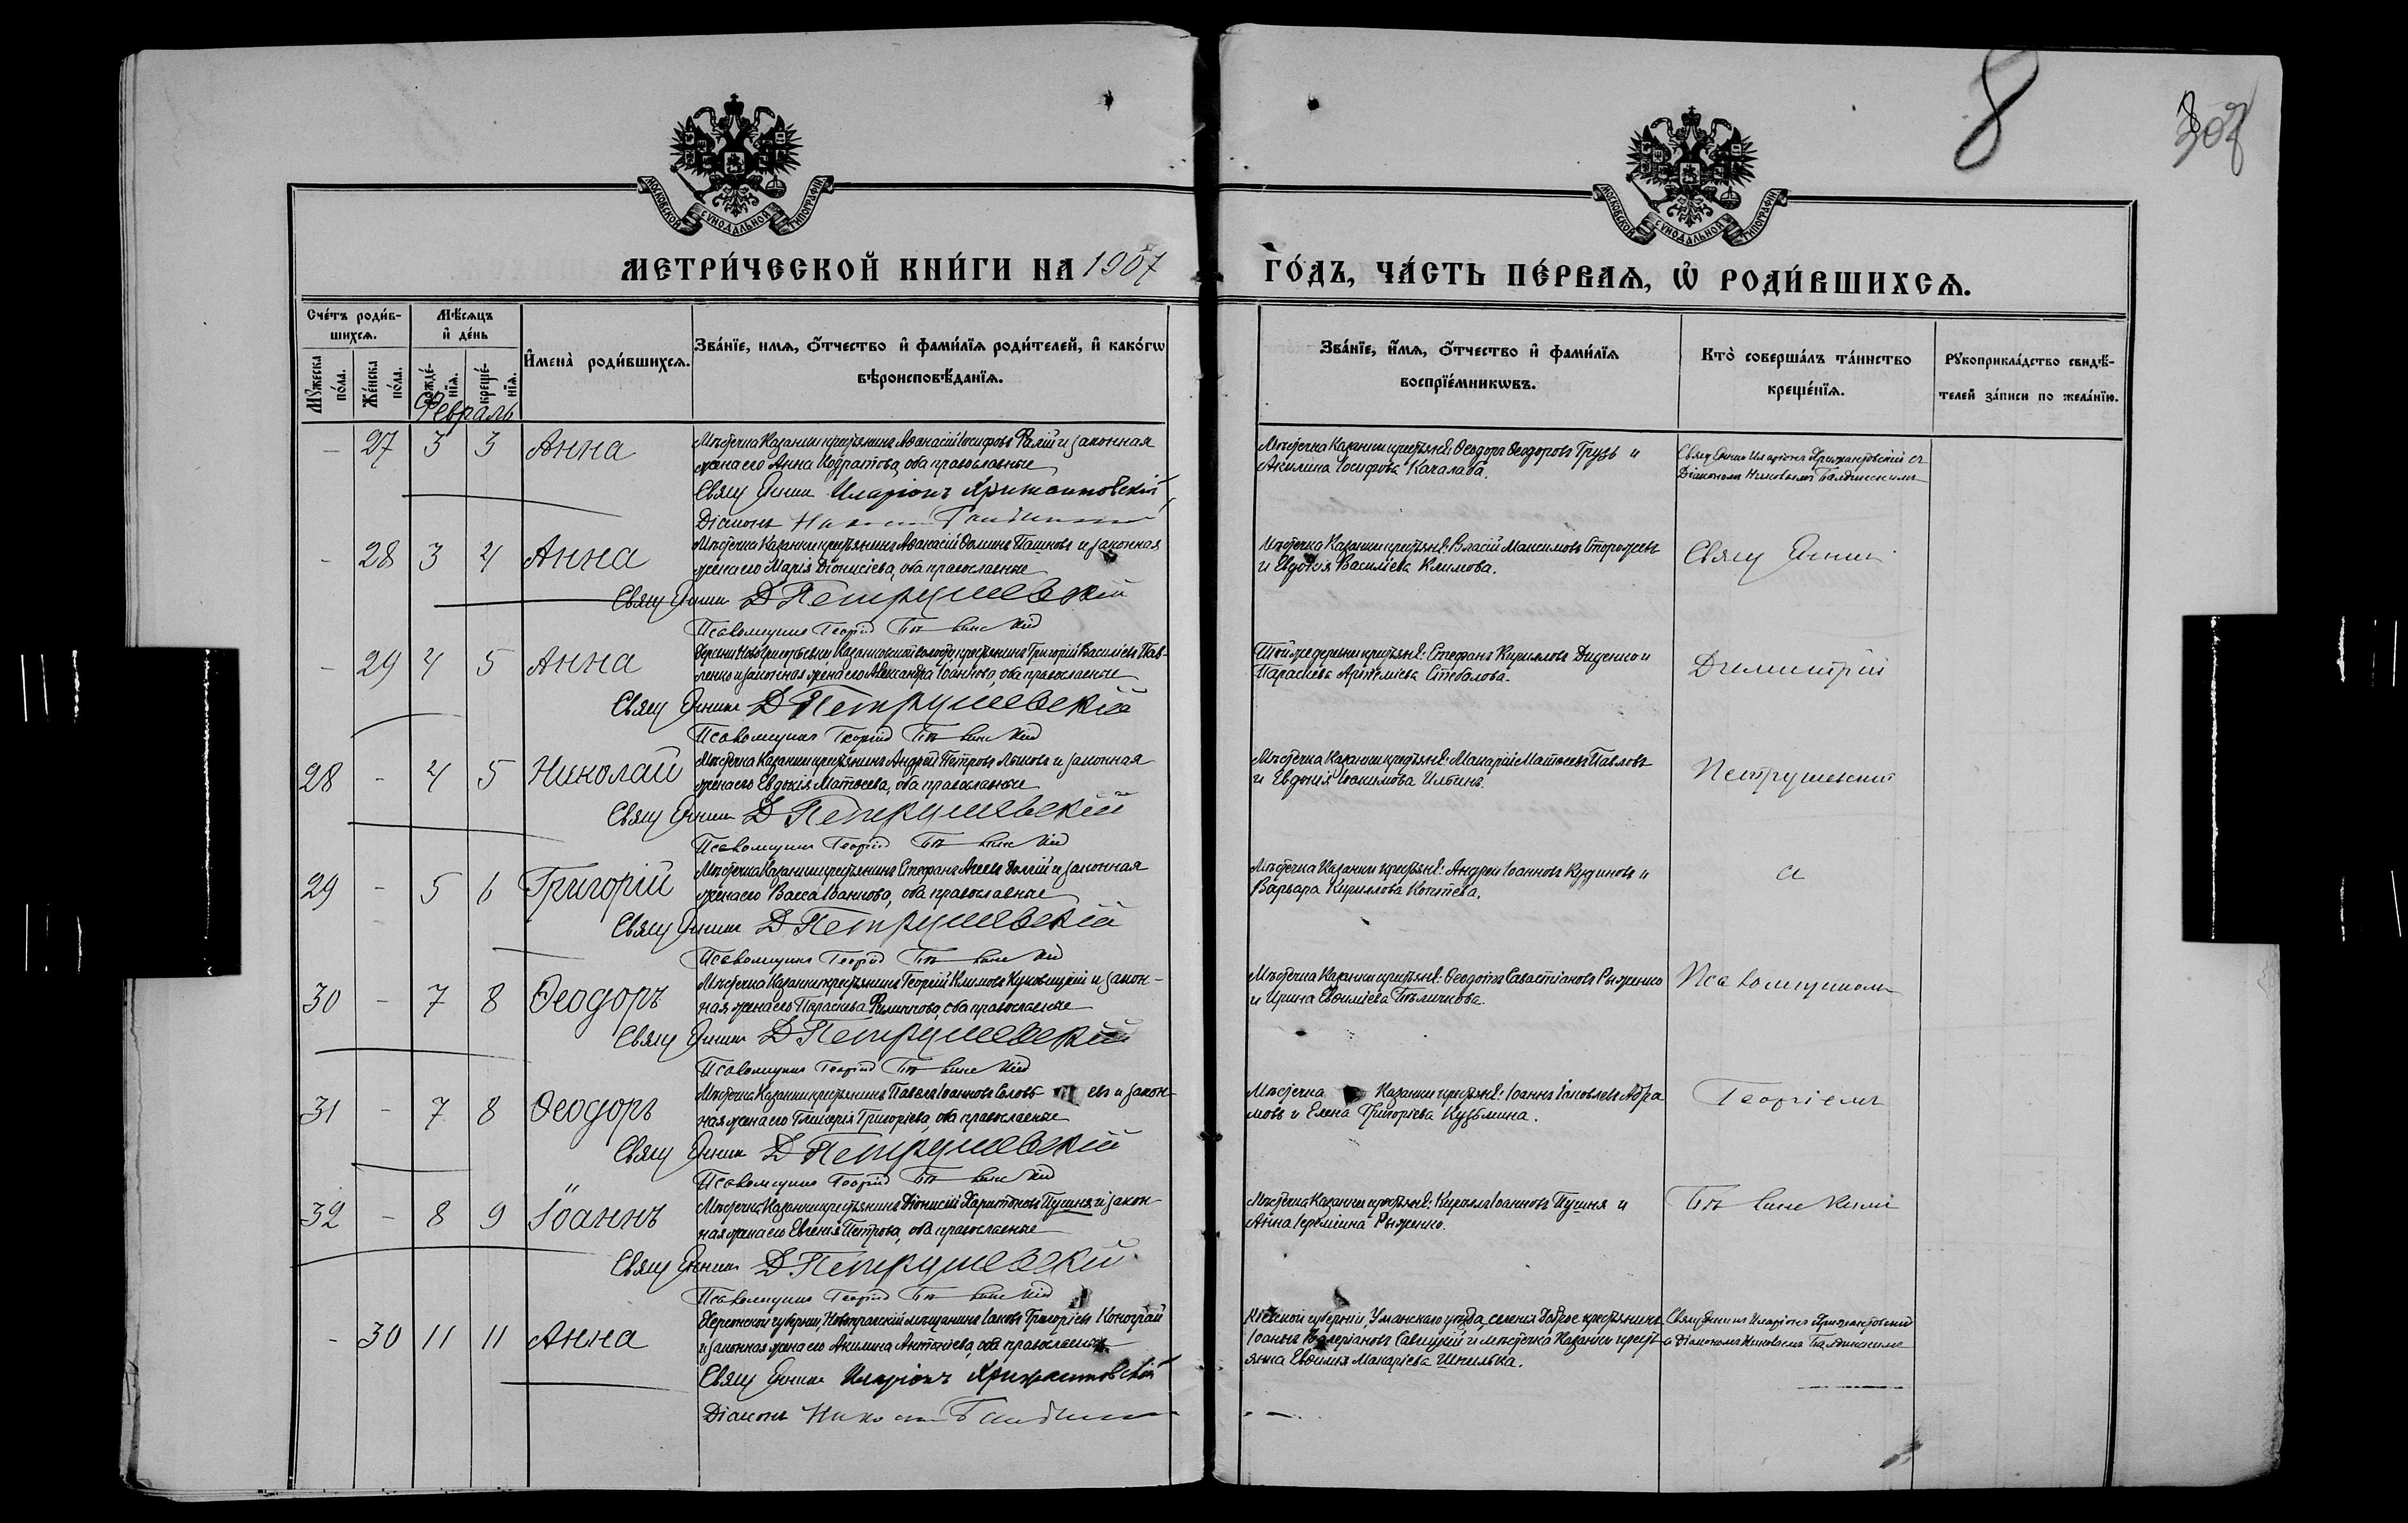 8
308
МОСКОВСКОЙ СУНОДАЛЬНОЙ ТИПОГРАФІИ
МОСКОВСКОЙ СУНОДАЛЬНОЙ ТИПОГРАФІИ
МЕТРИ́ЧЕСКОЙ КНИ́ГИ НА 1907
ГО́ДЪ, ЧА́СТЬ ПЕ́РВАѦ, Ѡ РОДИ́ВШИХСѦ.
Сче́тъ роди́в-
шихсѧ.
Мꙋжеска по́ла.
Же́нска по́ла.
Мѣ́сѧцъ и де́нь
рожде́-нїѧ.
креще́-нїѧ.
Имена̀ роди́вшихсѧ.
Зва́нїе, имѧ, о́тчество и фами́лїѧ роди́телей, и како́гѡ
вѣроисповѣ́данїѧ.
Зва́нїе, и́мѧ, о́тчество и фами́лїѧ
воспрїе́мникѡвъ.
Кто̀ соверша́лъ та́инство
креще́нїѧ.
Рꙋкоприкла́дство свидѣ́-
телей за́писи по жела́нїю.
Февраль
- 27 3 3 Анна
Мѣстечка Казанки крестьянинъ Аѳанасій Іосифовъ Ралій и законная
жена его Анна Кодратова, оба православные
Свящ Иларіонъ Крижановскій
Діаконъ
Мѣстечка Казанки крестьян: Ѳеодоръ Ѳеодоровъ Грузь и
Акилина Іосифова Качалаба.
Иларіонъ Крижановскій съ
Діакономъ
- 28 3 4 Анна
Мѣстечка Казанки крестьянинъ Аѳанасій Ѳоминъ Пашковъ и законная
жена его Марія Діонисіева, оба православные
Свящ Д Петрушевскій
Псаломщикъ Георгій
Мѣстечка Казанки крестьян: Власій Максимовъ Сторожевъ
и Евдокія Василіева Климова.
Свящ
- 29 4 5 Анна
Казанковской волости крестьянинъ Григорій Василіевъ Пав-
ленко и законная жена его Александра Іоаннова, оба православные
Свящ Д Петрушевскій
Псаломщикъ Георгій
Той же деревни крестьян: Стефанъ Кирилловъ Диденко и
Параскева Артеміева
Димитрій
28 - 4 5 Николай
Мѣстечка Казанки крестьянинъ Андрей Петровъ Лыковъ и законная
жена его Евдокія Матѳеева, оба православные
Свящ Д Петрушевскій
Псаломщикъ Георгій
Мѣстечка Казанки крестьян: Макарій Матѳеевъ Павловъ
и Евдокія Іоакимова Ильина.
Петрушевскій
29 - 5 6 Григорій
Мѣстечка Казанки крестьянинъ Стефанъ Долгій и законная
жена его Васса Іоаннова, оба православные
Свящ Д Петрушевскій
Псаломщикъ Георгій
Мѣстечка Казанки крестьян: Андрей Іоанновъ Кудиновъ и
Варвара Кириллова Коптева.
съ
30 - 7 8 Ѳеодоръ
Мѣстечка Казанки крестьянинъ Георгій Климовъ и закон-
ная жена его Параскева Филиппова, оба православные
Свящ Д Петрушевскій
Псаломщикъ Георгій
Мѣстечка Казанки крестьян: Ѳеодотъ Савастіановъ Рыженко
и Ирина Евѳиміева
Псаломщикомъ
31 - 7 8 Ѳеодоръ
Мѣстечка Казанки крестьянинъ Павелъ Іоанновъ Соловь евъ и закон-
ная жена его Гликерія Григоріева, оба православные
Свящ Д Петрушевскій
Псаломщикъ Георгій
Мѣстечка Казанки крестьян: Іоаннъ Іаковлевъ Абра
мовъ и Елена Григоріева Кузьмина.
Георгіемъ
32 - 8 9 Іоаннъ
Мѣстечка Казанки крестьянинъ Діонисій Харитоновъ Пушня и закон-
ная жена его Евгенія Петрова, оба православные
Свящ Д Петрушевскій
Псаломщикъ Георгій
Мѣстечка Казанки крестьян: Кириллъ Іоанновъ Пушня и
Анна Іереміина Рыженко.
- 30 11 11 Анна
Херсонской губерніи, мѣщанинъ Іаковъ Григоріевъ
и законная жена его Акилина Антоніева, оба православные
Свящ Иларіонъ Крижановскій
Діаконъ
Кіевской губерніи, Уманскаго уѣзда, селенія Доброе крестьянинъ
Іоаннъ Валеріановъ Савицкій и мѣстечка Казанки кресть-
янка Евѳимія Макаріева Шпилька.
Иларіонъ Крижановскій
съ Діакономъ